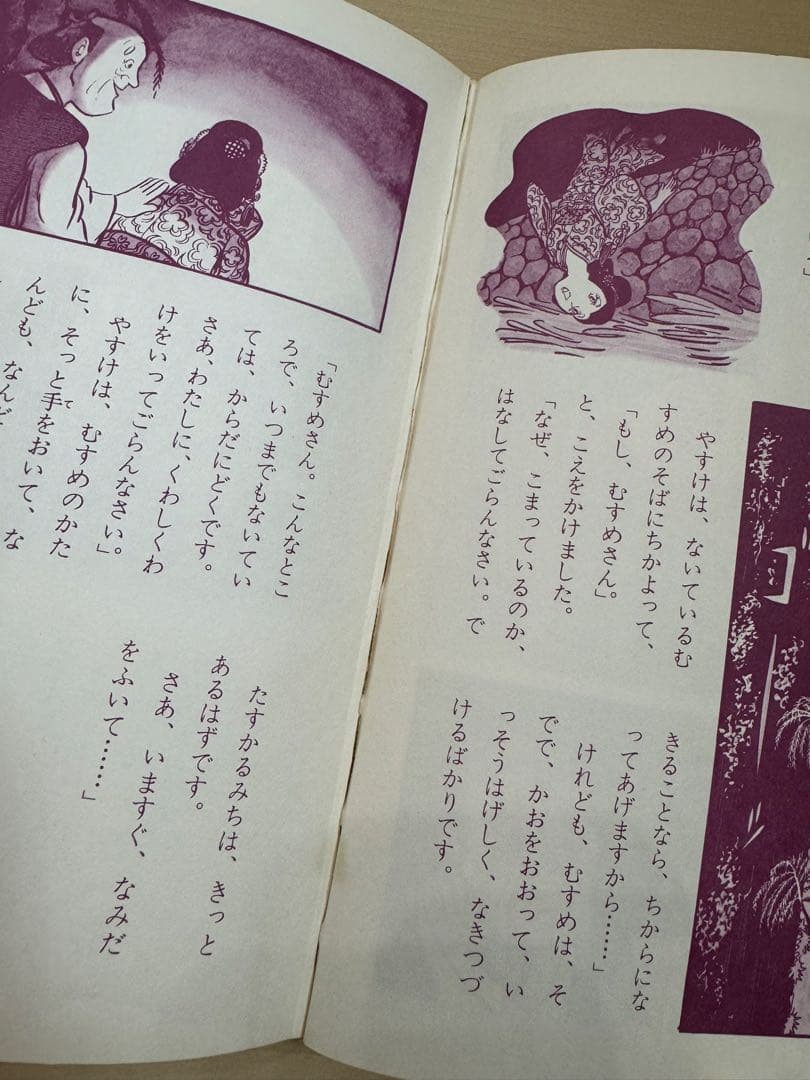 やすけは、ないているむ
すめのそばにちかよって、
「もし、むすめさん」。
と、こえをかけました。
「なぜ、こまっているのか、
はなしてごらんなさい。で
きることなら、ちからにな
ってあげますから……」
けれども、むすめは、そ
でで、かおをおおって、い
っそうはげしく、なきつづ
けるばかりです。
「むすめさん。こんなとこ
ろで、いつまでもないてい
ては、からだにどくです。
さあ、わたしに、くわしくわ
けをいってごらんなさい」
やすけは、むすめのかた
に、そっと手をおいて、な
んども、なんど
たすかるみちは、きっと
あるはずです。
さあ、いますぐ、なみだ
をふいて……」